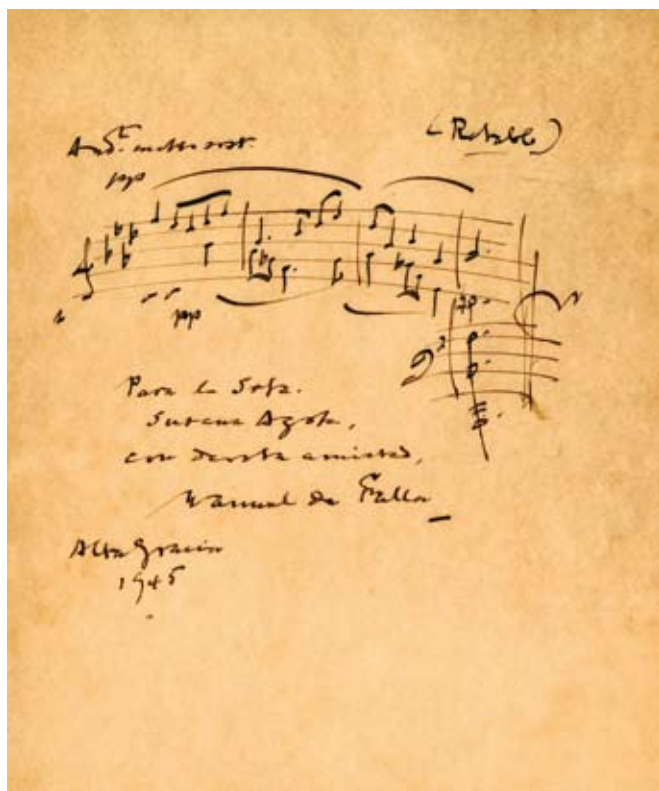 And.te molto sost.
(Retablo)
pp
pp
Para la Srta.
Susana
con devota amistad,
Manuel de Falla
Alta Gracia
1945